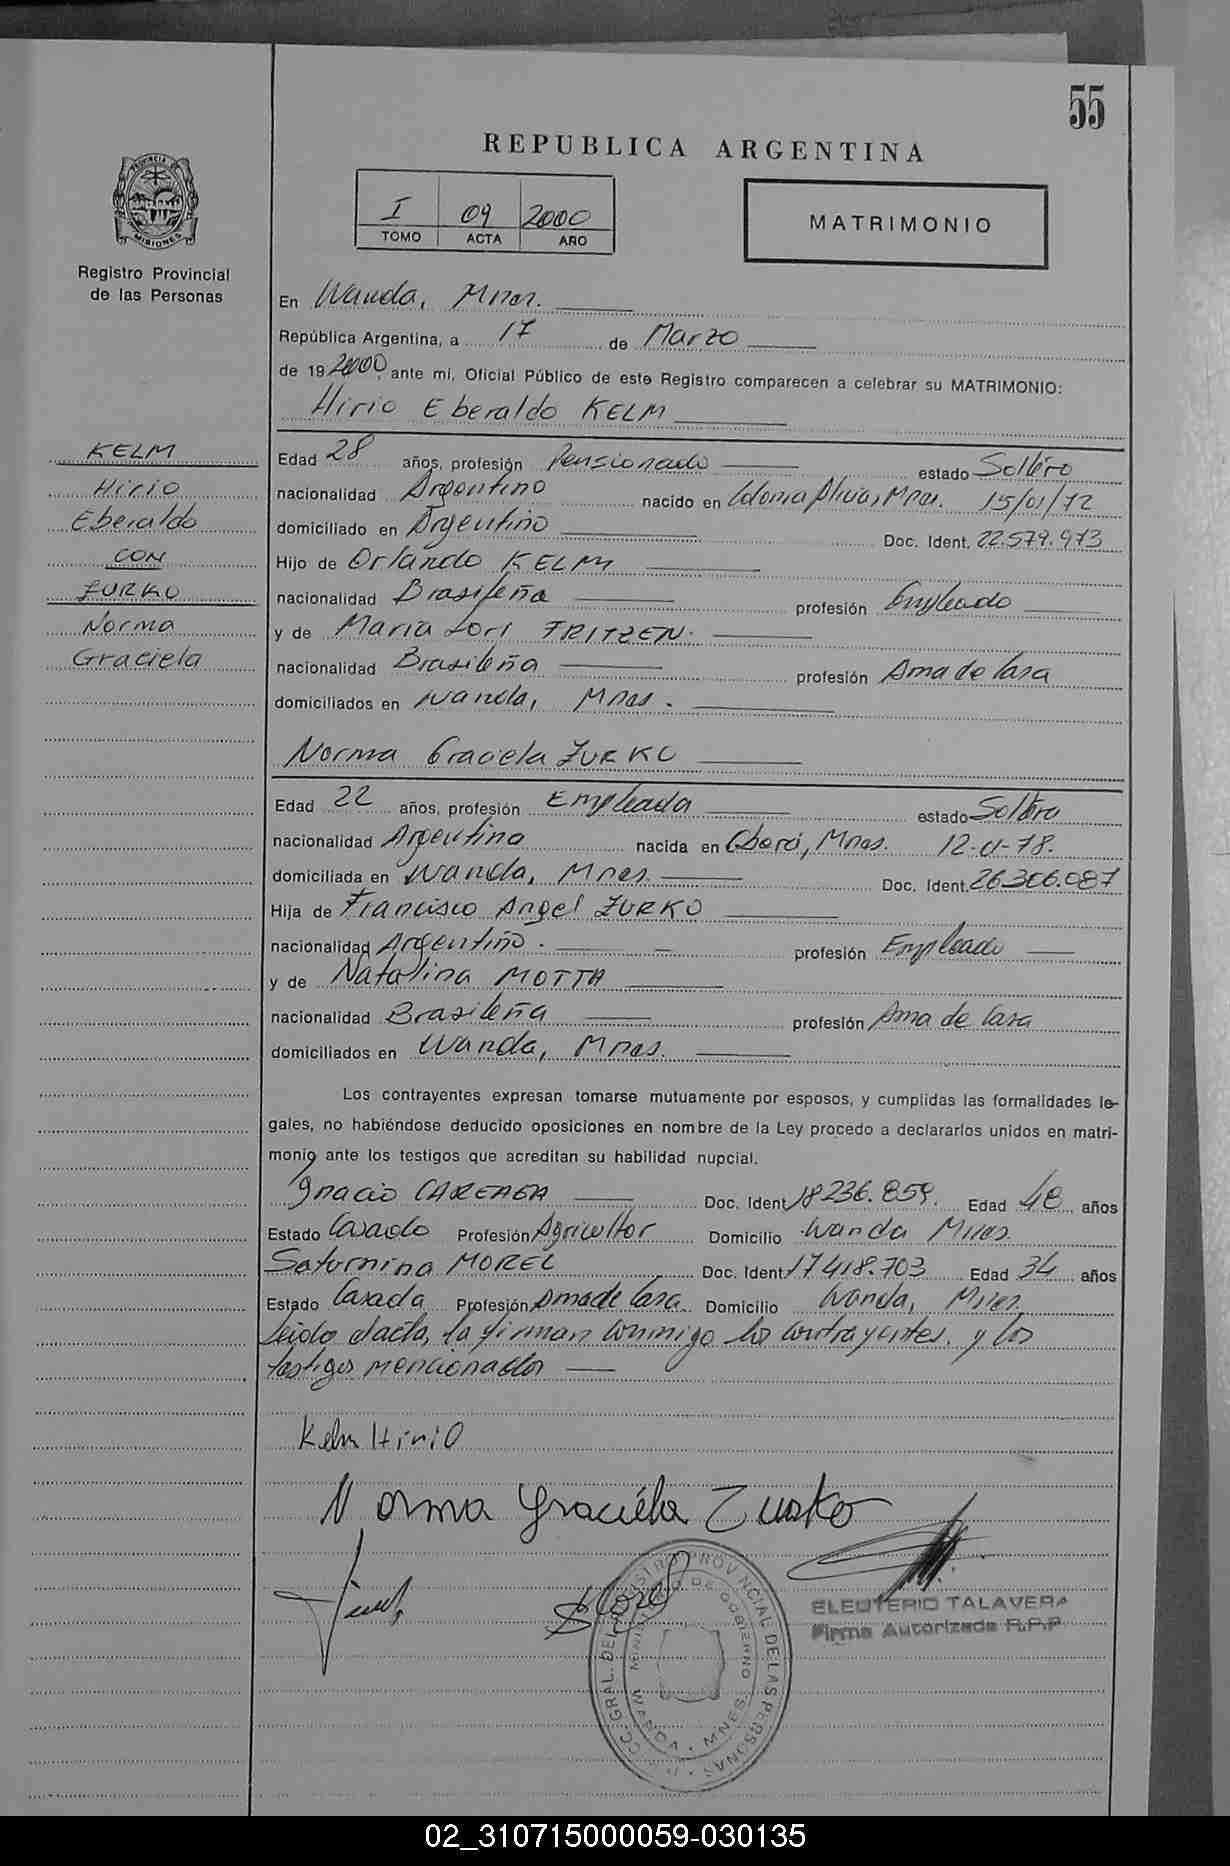 55
REPUBLICA ARGENTINA
I 09 2000
TOMO ACTA AÑO
MATRIMONIO
PROVINCIA DE
MISIONES
Registro Provincial
de las Personas
KELM
Hirio
Eberaldo
CON
ZURKO
Norma
Graciela
En Wanda, Mnes.
República Argentina, a 17 de Marzo
de 19 2000, ante mi, Oficial Público de este Registro comparecen a celebrar su MATRIMONIO:
Hirio Eberaldo KELM
Edad 28 años, profesión Pensionado estado Soltero
nacionalidad Argentino nacido en Colonia Alicia, Mnes. 15/01/72
domiciliado en Argentino Doc. Ident. 22.579.973
Hijo de Orlando KELM
nacionalidad Brasileña profesión Empleado
y de Maria Lori FRITZEN.
nacionalidad Brasileña profesión Ama de Casa
domiciliados en Wanda, Mnes.
Norma Graciela ZURKO
Edad 22 años, profesión Empleada estado Soltera
nacionalidad Argentina nacida en Oberá, Mnes. 12-
domiciliada en Wanda, Mnes. Doc. Ident. 26.306.087
Hija de Francisco Angel ZURKO
nacionalidad Argentino. profesión Empleado
y de Natalina MOTTA
nacionalidad Brasileña profesión Ama de Casa
domiciliados en Wanda, Mnes.
Los contrayentes expresan tomarse mutuamente por esposos, y cumplidas las formalidades le-
gales, no habiéndose deducido oposiciones en nombre de la Ley procedo a declararlos unidos en matri-
monio ante los testigos que acreditan su habilidad nupcial.
Ignacio CAREAGA Doc. Ident 18236.859. Edad 48 años
Estado Casado Profesión Agricultor Domicilio Wanda Mnes.
Saturnina MOREL Doc. Ident 17418.703 Edad 34 años
Estado Casada Profesión Ama de Casa Domicilio Wanda, Mnes.
Leida el acta, la firman conmigo los contrayentes. y los
testigos mencionados
Kelm Hirio
Norma Graciela Zurko
Morel
ELEUTERIO TALAVERA
Firma Autorizada R.P.P.
GRAL. DEL REGISTRO PROVINCIAL DE LAS PERSONAS
MINISTERIO DE GOBIERNO
WANDA - MNES.
02_310715000059-030135